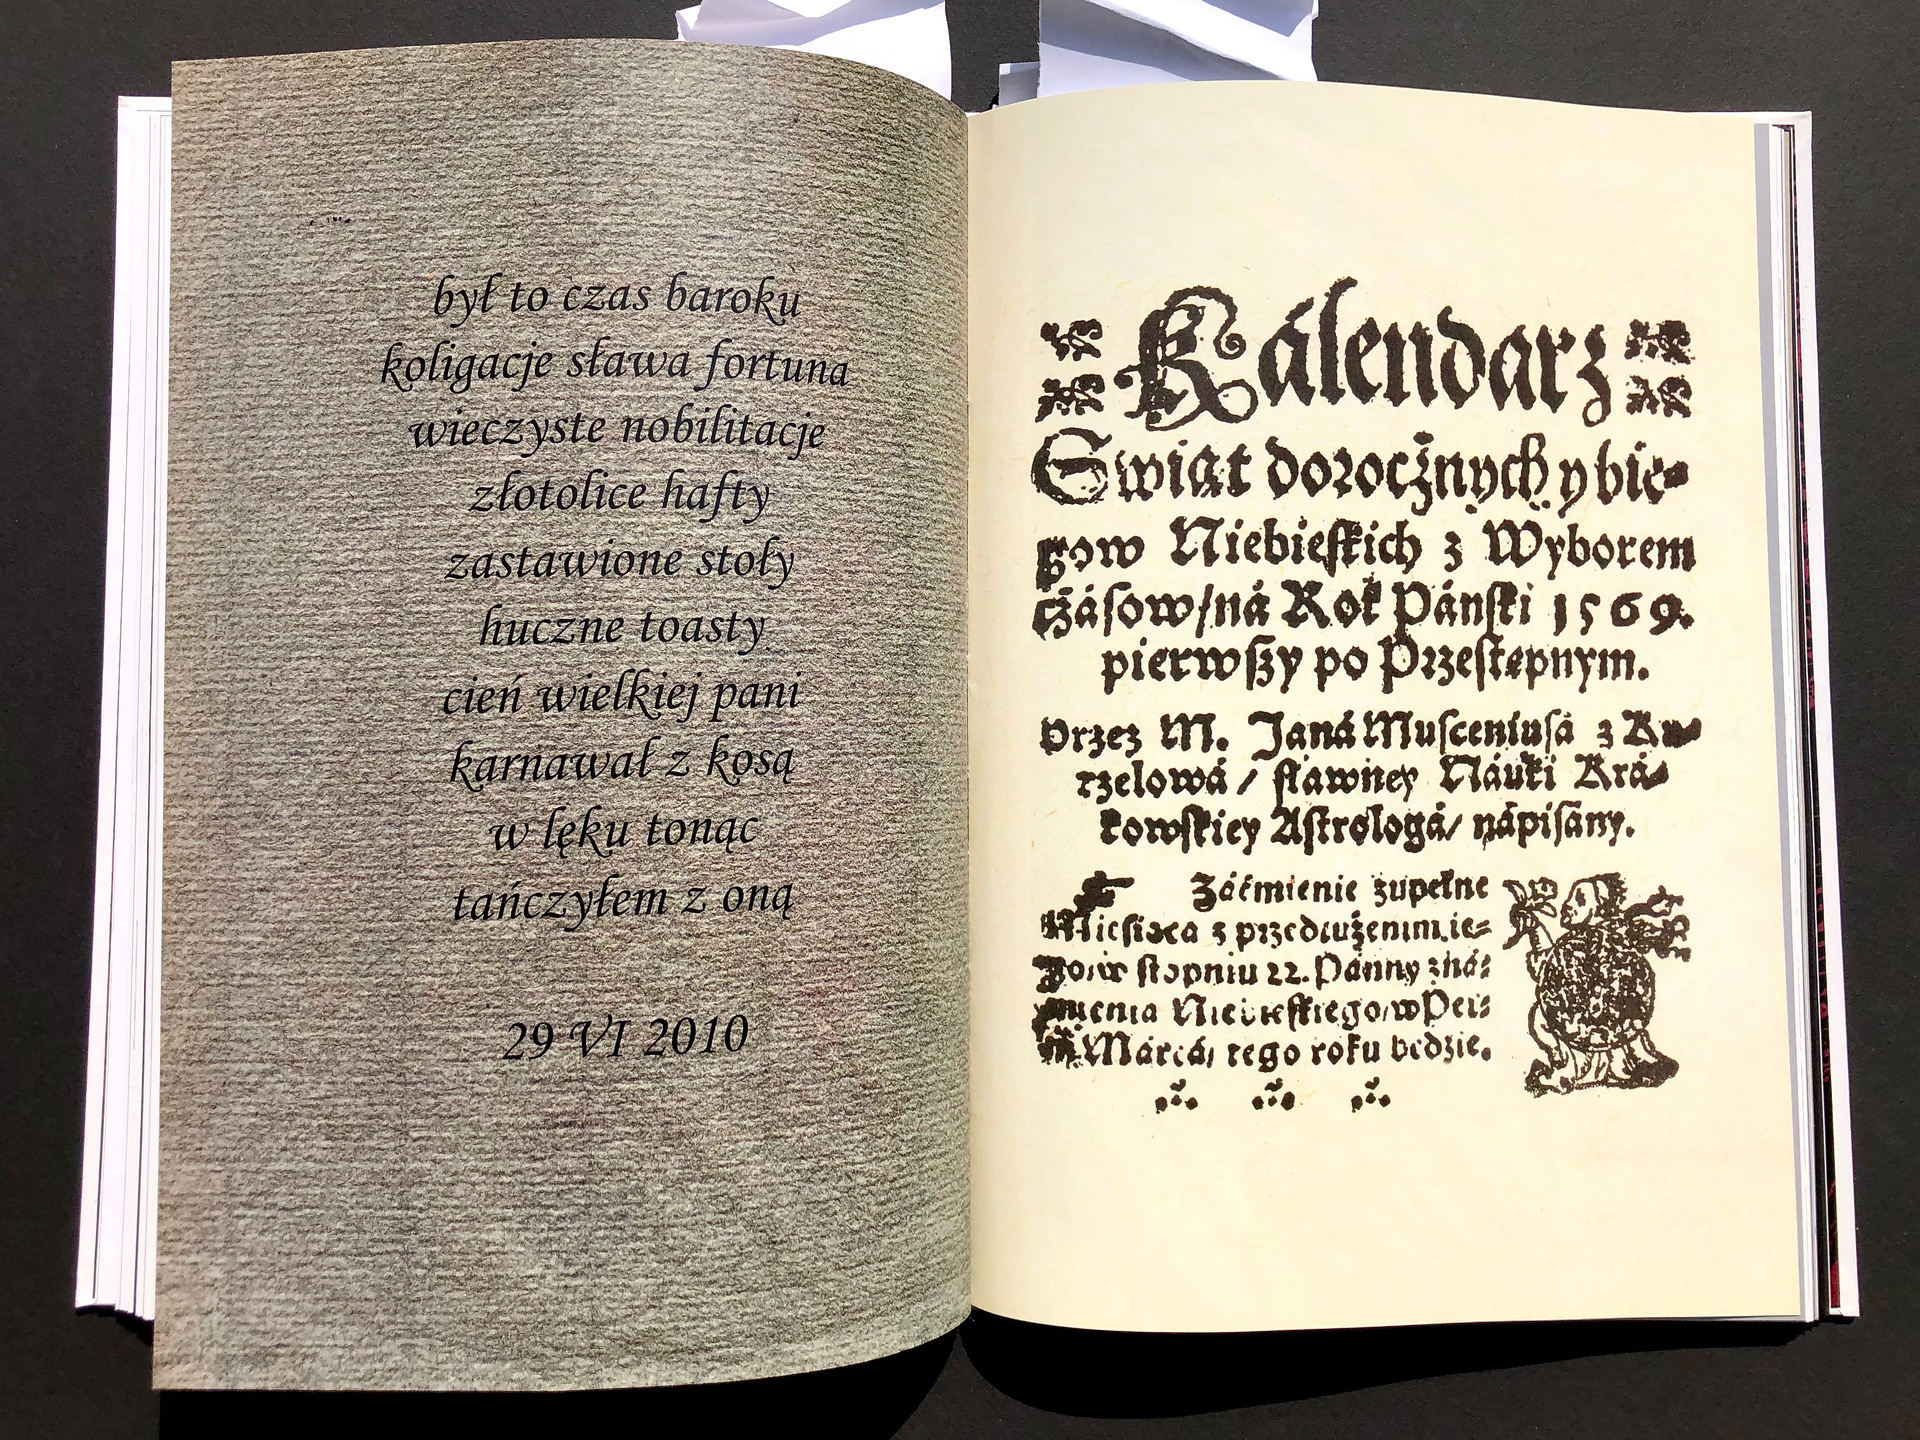 był to czas baroku
koligacje sława fortuna
wieczyste nobilitacje
złotolice hafty
zastawione stoły
huczne toasty
cień wielkiej pani
karnawał z kosą
w lęku tonąc
tańczyłem z oną
29 VI 2010
Kálendarz
Swiąt dorocżnych y bie⸗
gow Niebieſkich z Wyborem
cżáſow/ná Rok Páńſki 1569.
pierwſzy po Przeſtępnym.
Przez M. Janá Muſceniuſá z Ku⸗
rzelowá / ſławney Náuki Krá⸗
kowſkiey Aſtrologá/ nápiſány.
Záćmienie zupełne
Mieſiąca z przedłużenim ie⸗
go/w ſtopniu 22. Pánny zná⸗
mienia Niebieſkiego/w
Márcá/ tego roku będzie.